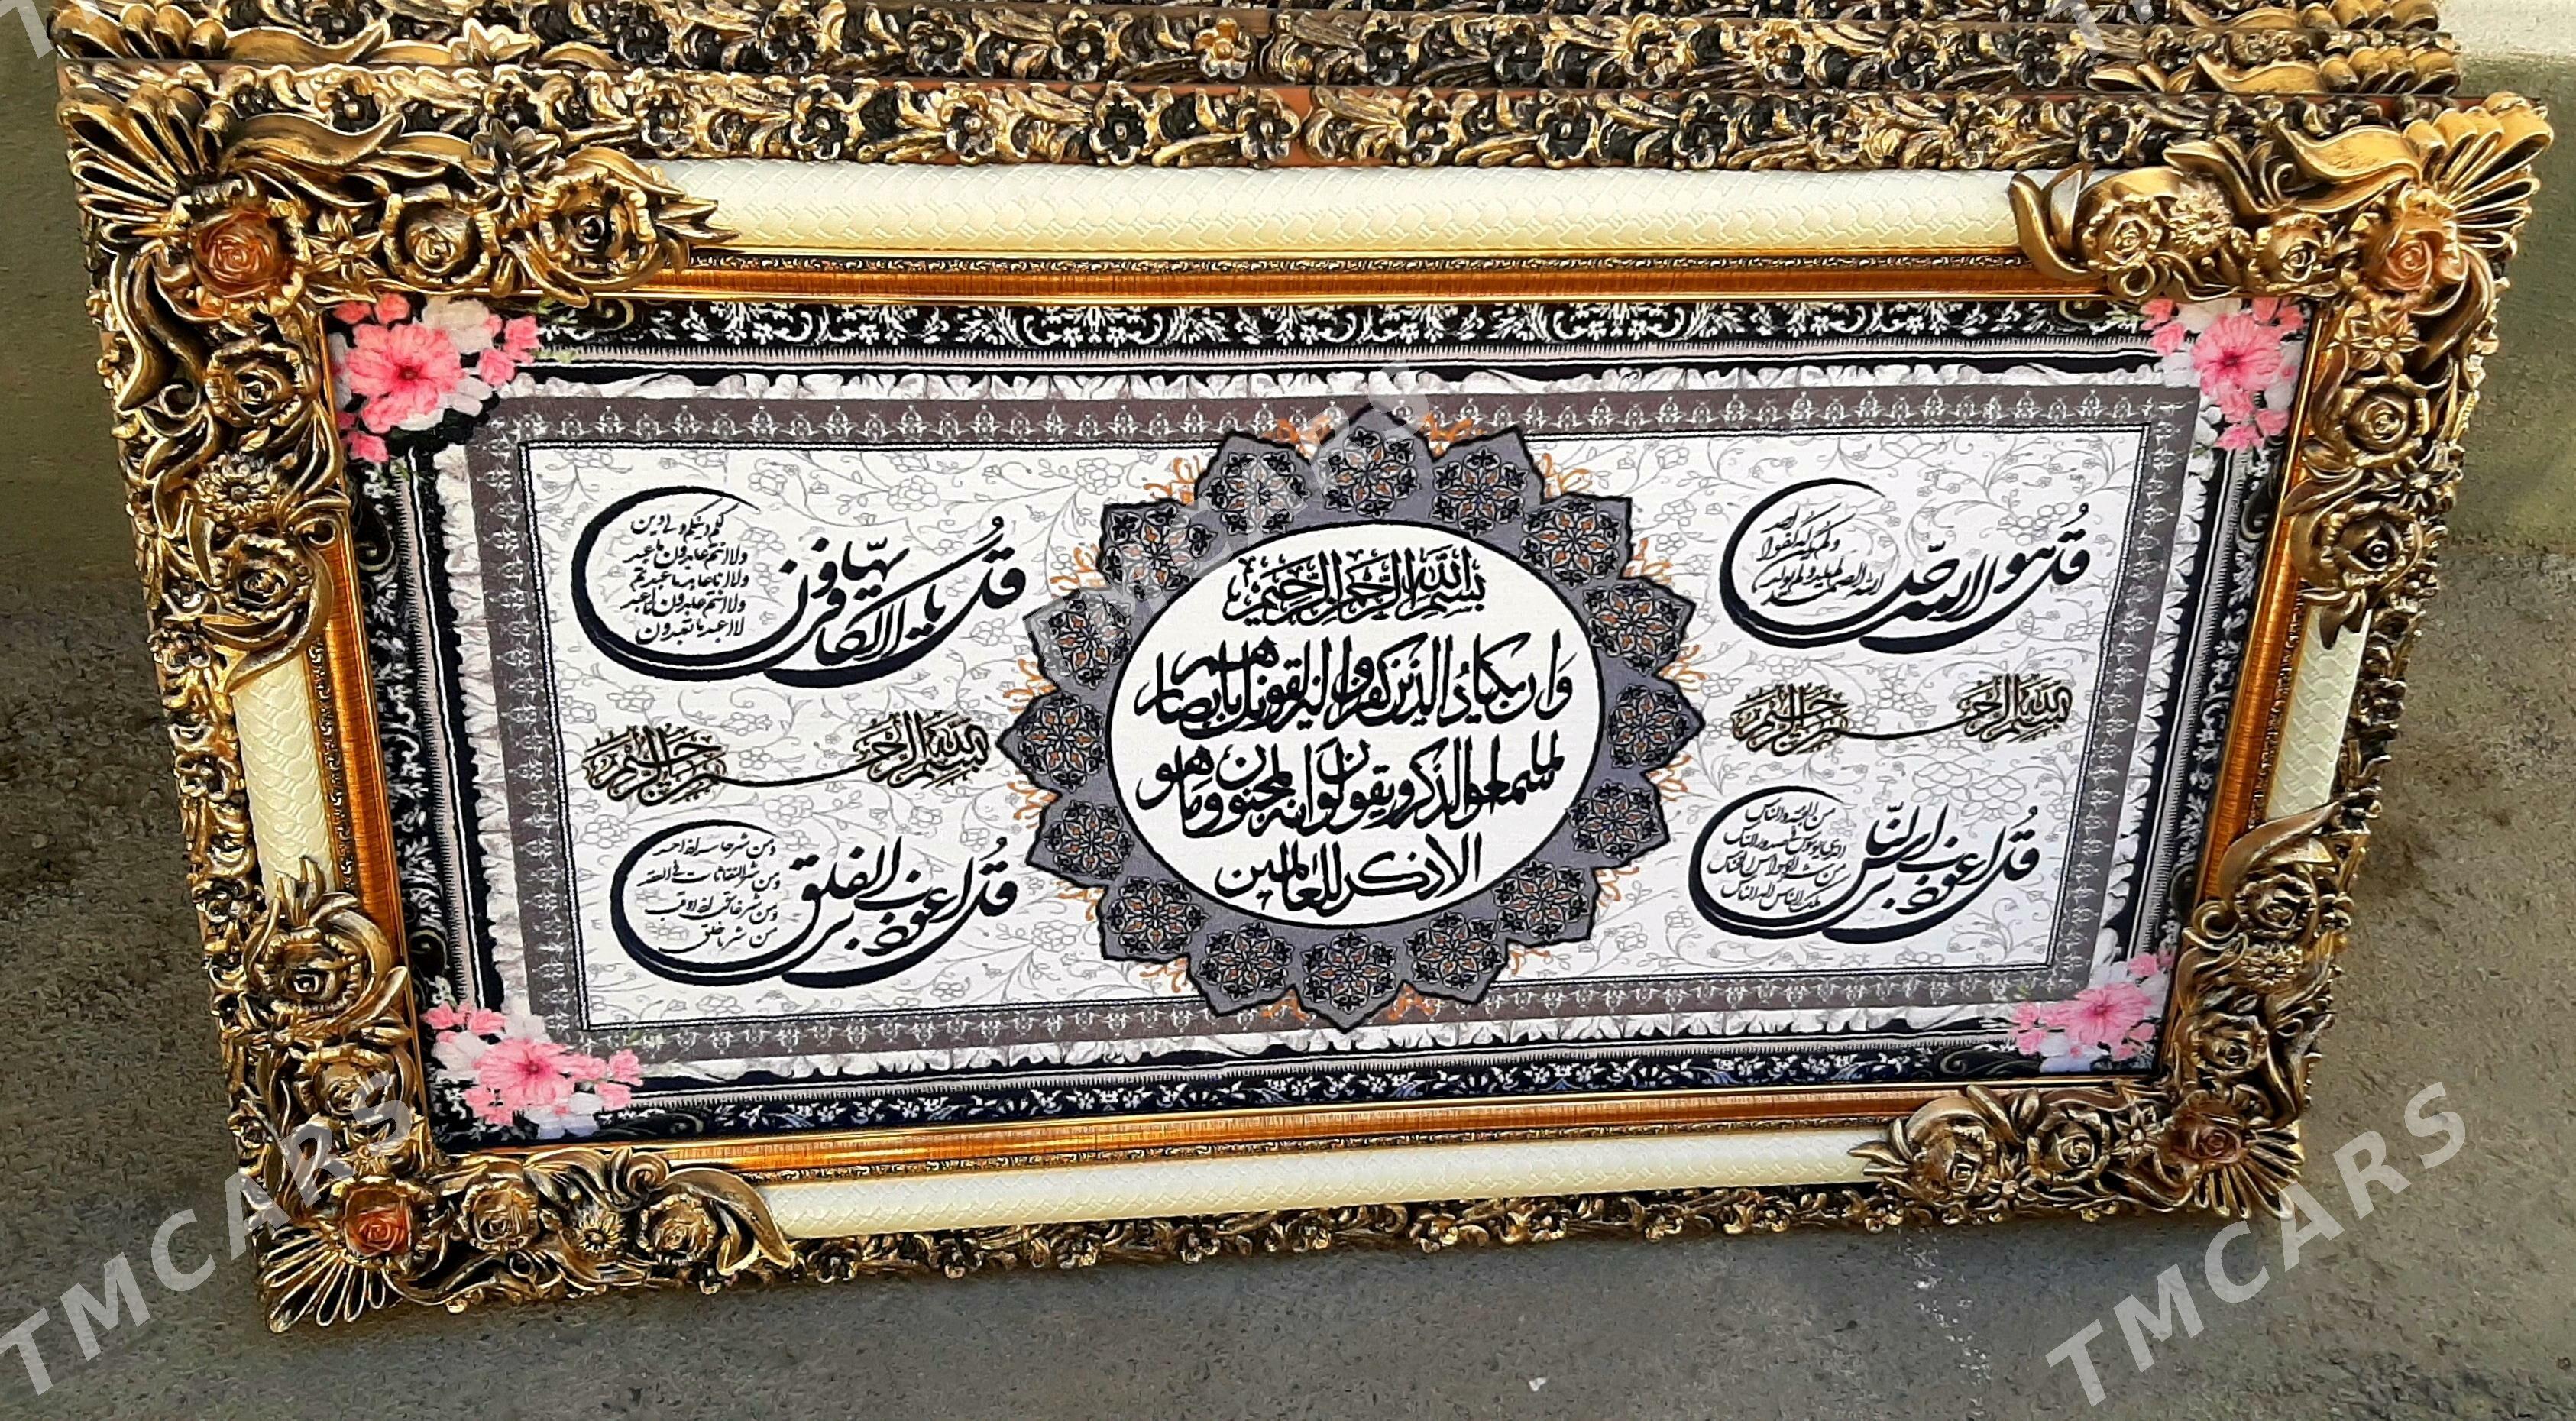 بسم الله الرحمن الرحيم
وان يكاد الذين كفروا ليزلقونك بابصارهم
لما سمعوا الذكر ويقولون انه لمجنون وما هو
الا ذكر للعالمين
قل هو الله احد
الله الصمد لم يلد ولم يولد
ولم يكن له كفوا احد
بسم الله الرحمن الرحيم
قل اعوذ برب الناس
ملك الناس اله الناس
من شر الوسواس الخناس
الذي يوسوس في صدور الناس
من الجنة والناس
قل يا ايها الكافرون
لا اعبد ما تعبدون
ولا انتم عابدون ما اعبد
ولا انا عابد ما عبدتم
ولا انتم عابدون ما اعبد
لكم دينكم ولي دين
بسم الله الرحمن الرحيم
قل اعوذ برب الفلق
من شر ما خلق
ومن شر غاسق اذا وقب
ومن شر النفاثات في العقد
ومن شر حاسد اذا حسد
TMCARS
TMCARS